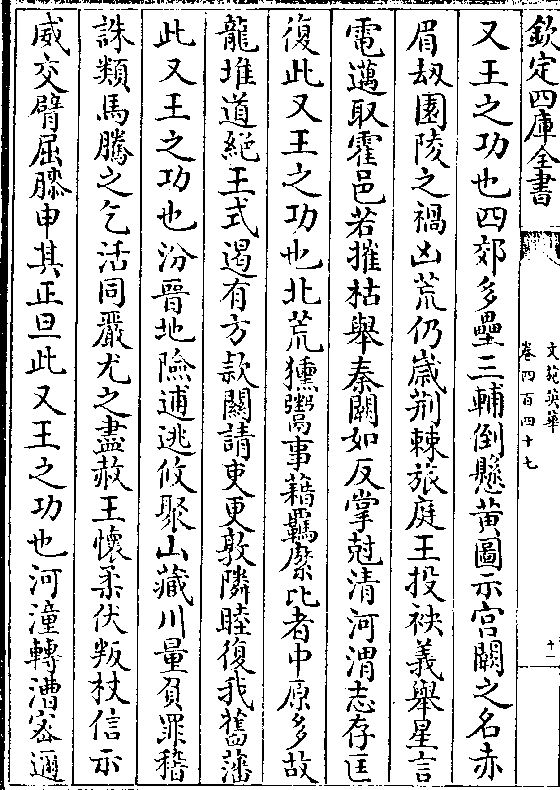 欽定四庫全書
文苑英華
卷四百四十七
十一
又王之功也四郊多壘三輔倒懸黄圖示宫闕之名赤
眉刼園陵之禍凶荒仍嵗荆棘旅庭王投袂義舉星言
電邁取霍邑若摧枯舉秦關如反掌尅清河渭志存匡
復此又王之功也北荒獯鬻事藉羈縻比者中原多故
龍堆道絶王式遏有方款關請吏更敦隣睦復我舊藩
此又王之功也汾晉地險逋逃攸聚山藏川量負罪稽
誅類馬騰之乞活同嚴尤之盡赦王懷柔伏叛杖信示
威交臂屈膝申其正旦此又王之功也河潼轉漕宻邇